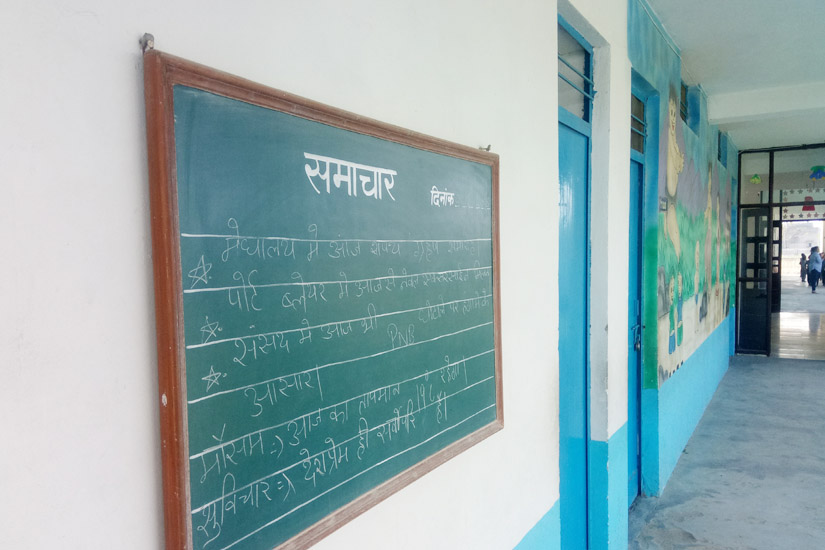 समाचार
दिनांक
मेघालय मे आज शपथ ग्रहण
पोर्ट ब्लेयर मे आज से
संसद मे आज भी PNB
आसार।
मौसम :-) आज का तापमान १९८ रहेगा।
सुविचार :-) देशप्रेम ही सर्वोपरि है।